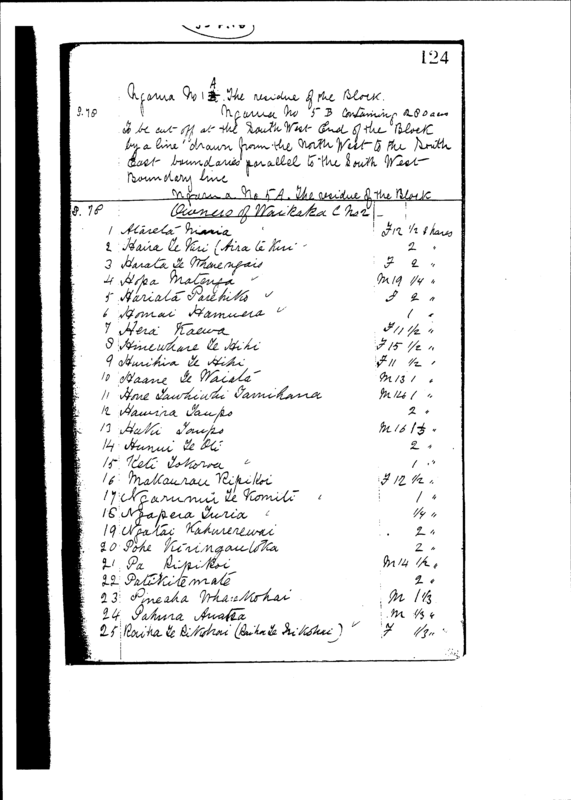 124
Ngarua No 1 A. The residue of the Block.
S. 78 Ngarua No 5 B Containing 280 acres
to be cut off at the South West End of the Block
by a line drawn from the North West to the South
East boundaries parallel to the South West
Boundary line
Ngarua No 5A. The residue of the Block
S. 78 Owners of Waikaka C No 2
1 Atareta F 12 1/2 Shares
2 Haira Te Keri (Aira te Keri 2 "
3 Harata Te Wharengaio F 2 "
4 Hopa Matenga " M 19 1/4 "
5 Hariata Parehiko " F 2 "
6 Homai Hamuera " 1 "
7 Hera Kaewa F 11 1/2 "
8 Hinewhare Te Hihi F 15 1/2 "
9 Hurihia Te Hihi F 11 1/2 "
10 Haane Te Waiata M 13 1 "
11 Hone Tawhiwhi Tamihana M 14 1 "
12 Hamira Taupo 2 "
13 Huki Taupo M 16 1 1/3 "
14 Hunui Te Oti 2 "
15 Keti Tokoroa " 1 "
16 Makaurau Ripikoi F 12 1/2 "
17 Te Komiti " 1 "
18 Ngapera Turia " 1/4 "
19 Ngatai Kahurerewai 2 "
20 Pohe Kiringautoka 2 "
21 Pa Ripikoi M 14 1/2 "
22 Patukitemate 2 "
23 Pineaha M 1 1/3
24 Pahura M 1/3 "
25 Raiha Te (Raiha Te ) " F 1/3 "